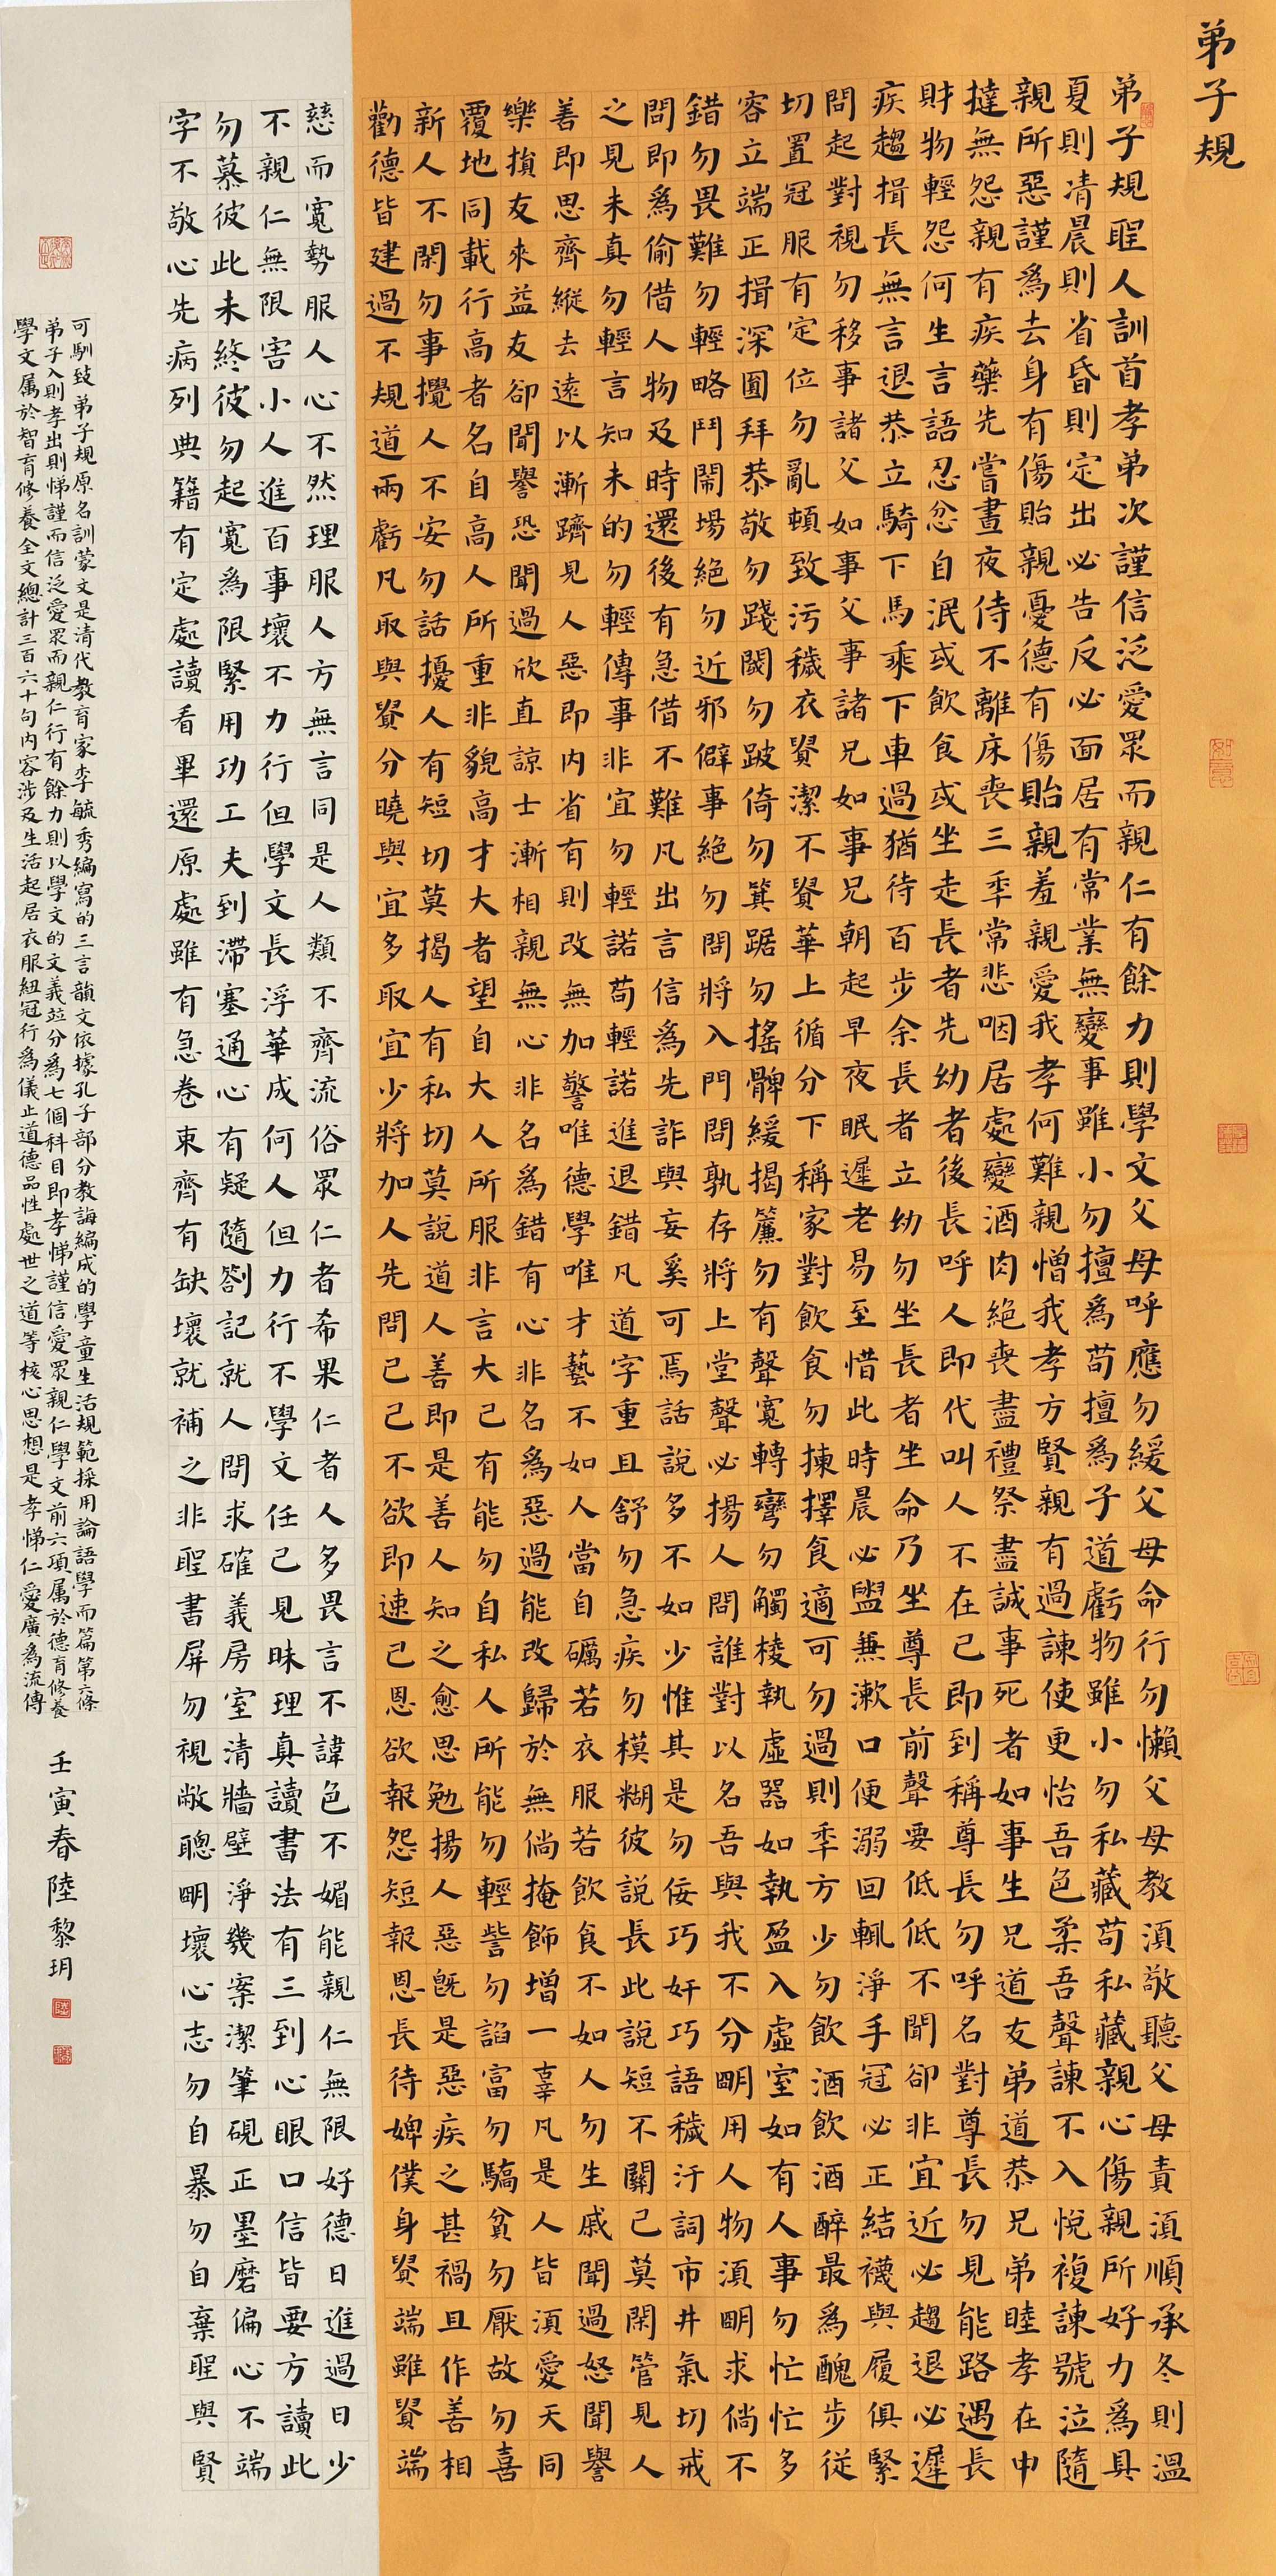 弟子規
弟子規聖人訓首孝弟次謹信泛愛眾而親仁有餘力則學文父母呼應勿緩父母命行勿懶父母教須敬聽父母責須順承冬則溫
夏則凊晨則省昏則定出必告反必面居有常業無變事雖小勿擅為苟擅為子道虧物雖小勿私藏苟私藏親心傷親所好力為具
親所惡謹為去身有傷貽親憂德有傷貽親羞親愛我孝何難親憎我孝方賢親有過諫使更怡吾色柔吾聲諫不入悅複諫號泣隨
撻無怨親有疾藥先嘗晝夜侍不離床喪三年常悲咽居處變酒肉絕喪盡禮祭盡誠事死者如事生兄道友弟道恭兄弟睦孝在中
財物輕怨何生言語忍忿自泯或飲食或坐走長者先幼者後長呼人即代叫人不在己即到稱尊長勿呼名對尊長勿見能路遇長
疾趨揖長無言退恭立騎下馬乘下車過猶待百步余長者立幼勿坐長者坐命乃坐尊長前聲要低低不聞卻非宜近必趨退必遲
問起對視勿移事諸父如事父事諸兄如事兄朝起早夜眠遲老易至惜此時晨必盥兼漱口便溺回輒淨手冠必正結襪與履俱緊
切置冠服有定位勿亂頓致污穢衣貴潔不貴華上循分下稱家對飲食勿揀擇食適可勿過則年方少勿飲酒飲酒醉最為醜步從
容立端正揖深圓拜恭敬勿踐閾勿跛倚勿箕踞勿搖髀緩揭簾勿有聲寬轉彎勿觸棱執虛器如執盈入虛室如有人事勿忙忙多
錯勿畏難勿輕略鬥鬧場絕勿近邪僻事絕勿問將入門問孰存將上堂聲必揚人問誰對以名吾與我不分明用人物須明求倘不
問即為偷借人物及時還後有急借不難凡出言信為先詐與妄奚可焉話說多不如少惟其是勿佞巧奸巧語穢汙詞市井氣切戒
之見未真勿輕言知未的勿輕傳事非宜勿輕諾苟輕諾進退錯凡道字重且舒勿急疾勿模糊彼說長此說短不關己莫閑管見人
善即思齊縱去遠以漸躋見人惡即內省有則改無加警唯德學唯才藝不如人當自礪若衣服若飲食不如人勿生戚聞過怒聞譽
樂損友來益友卻聞譽恐聞過欣直諒士漸相親無心非名為錯有心非名為惡過能改歸於無倘掩飾增一辜凡是人皆須愛天同
覆地同載行高者名自高人所重非貌高才大者望自大人所服非言大己有能勿自私人所能勿輕訾勿諂富勿驕貧勿厭故勿喜
新人不閑勿事攪人不安勿話擾人有短切莫揭人有私切莫說道人善即是善人知之愈思勉揚人惡既是惡疾之甚禍且作善相
勸德皆建過不規道兩虧凡取與貴分曉與宜多取宜少將加人先問己己不欲即速已恩欲報怨短報恩長待婢僕身貴端雖貴端
慈而寬勢服人心不然理服人方無言同是人類不齊流俗眾仁者希果仁者人多畏言不諱色不媚能親仁無限好德日進過日少
不親仁無限害小人進百事壞不力行但學文長浮華成何人但力行不學文任己見昧理真讀書法有三到心眼口信皆要方讀此
勿慕彼此未終彼勿起寬為限緊用功工夫到滯塞通心有疑隨劄記就人問求確義房室清牆壁淨幾案潔筆硯正墨磨偏心不端
字不敬心先病列典籍有定處讀看畢還原處雖有急卷束齊有缺壞就補之非聖書屏勿視敝聰明壞心志勿自暴勿自棄聖與賢
可馴致弟子規原名訓蒙文是清代教育家李毓秀編寫的三言韻文依據孔子部分教誨編成的學童生活規範採用論語學而篇第六條
弟子入則孝出則悌謹而信泛愛眾而親仁行有餘力則以學文的文義並分為七個科目即孝悌謹信愛眾親仁學文前六項属於德育修養
學文属於智育修養全文總計三百六十句內容涉及生活起居衣服紐冠行為儀止道德品性處世之道等核心思想是孝悌仁愛廣為流傳
壬寅春陸黎玥